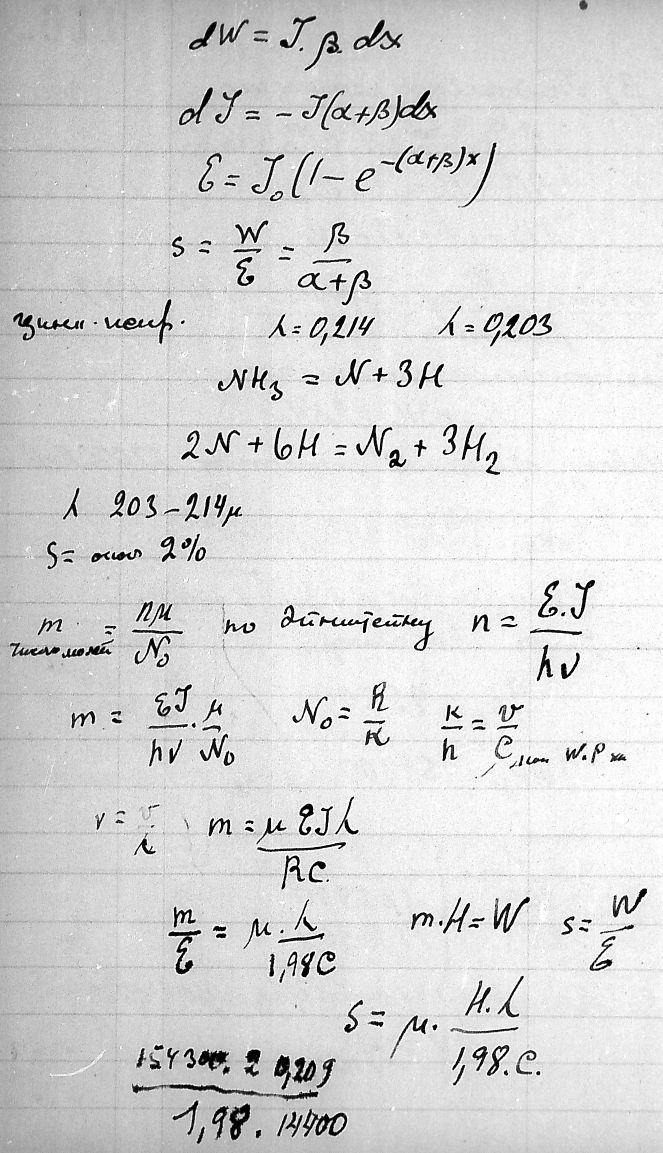 dW = J. β. dx
dJ = - J(α+β)dx
Ɛ = J₀(1 - e^-(α+β)x)
s = W/Ɛ = β/(α+β)
λ=0,214 λ=0,203
NH₃ = N + 3H
2N + 6H = N₂ + 3H₂
λ 203-214μ
S= около 2%
m число молей = nμ/N₀ по Эйнштейну n = Ɛ.J/hν
m = ƐJ/hν . μ/N₀ N₀ = R/κ κ/h = v/C
ν = v/λ m = μƐJλ/RC.
m/Ɛ = μ. λ/1,98C m.H=W s= W/Ɛ
S = μ. H.λ/1,98.C.
154300. 2 0,209/1,98. 14400